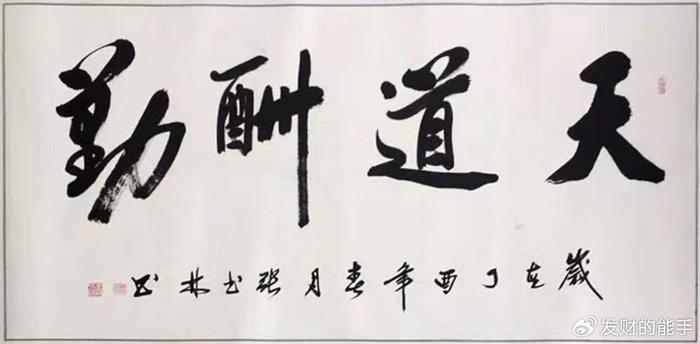 天道酬勤
歲在丁酉年春月张弋林书
发财的能手